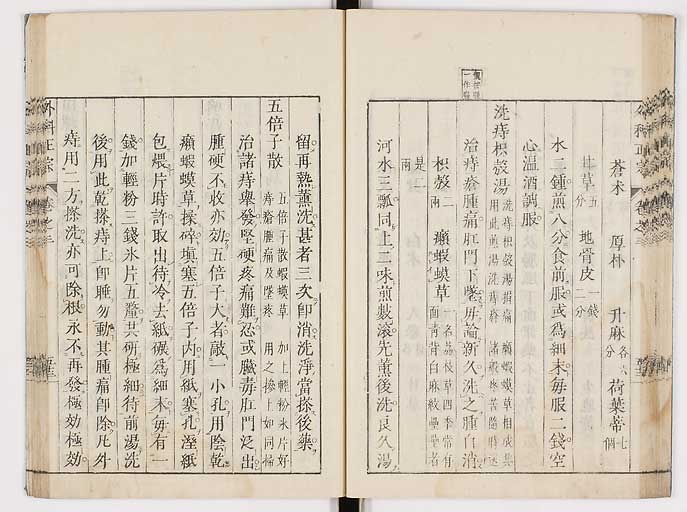 蒼朮 厚朴 升麻各六分 荷葉蒂七個
甘草五分 地骨皮一錢二分
水二鍾煎八分食前服或爲細末每服二錢空
心溫酒調服
洗痔枳殼湯 洗痔枳殼湯消痛 癩蝦蟆草相成共 用此煎湯洗痔瘡 諸般疼苦隨時
治痔瘡腫痛肛門下墜毋論新久洗之腫自消
枳殼二兩 癩蝦蟆草一名荔枝草四季常有面青背白麻紋壘壘者
是二兩
河水三瓢同上二味煎數滾先薰後洗良久湯
留再熱薰洗甚者三次卽消洗淨當搽後藥
五倍子散 五倍子散蝦蟆草 加上輕粉氷片好 痔瘡腫痛及墜疼 用之搽上如同掃
治諸痔舉發堅硬疼痛難忍或臟毒肛門泛出
腫硬不收亦効五倍子大者敲一小孔用陰乾
癩蝦蟆草揉碎填塞五倍子內用紙塞孔溼紙
包煨片時許取出待冷去紙碾爲細末每有一
錢加輕粉三錢氷片五釐共研極細待前湯洗
後用此乾搽痔上卽睡勿動其腫痛卽除凡外
痔用二方搽洗亦可除根永不再發極効極効
外科正宗 卷之三